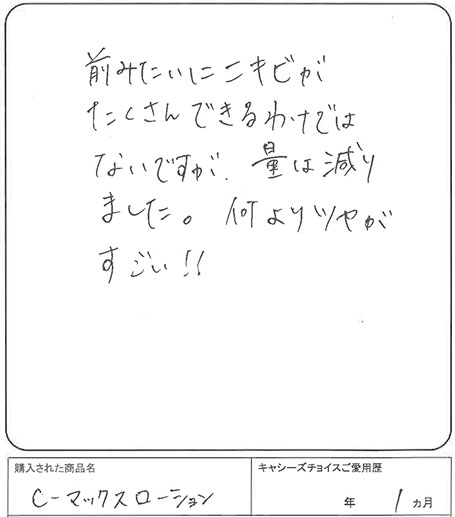 前みたいにニキビが
たくさんできるわけでは
ないですが、量は減り
ました。何よりツヤが
すごい!!
購入された商品名
C-マックスローション
キャシーズチョイスご愛用歴
年 1 カ月